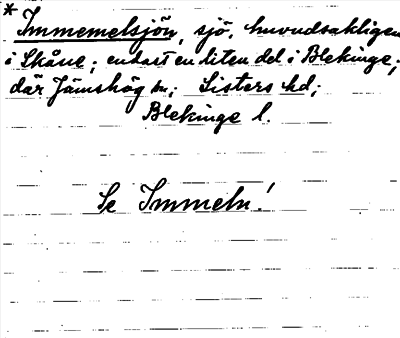 * Immemelsjön, sjö, huvudsakligen
i Skåne; endast en liten del i Blekinge;
där Jämshög sn; Listers hd;
Blekinge l.
Se Immeln!